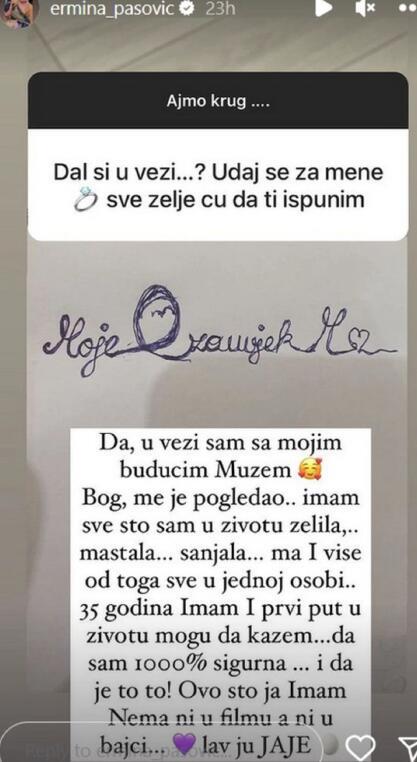 ermina_pasovic 23h
Ajmo krug ....
Dal si u vezi...? Udaj se za mene
💍 sve zelje cu da ti ispunim
Moje zauvjek M
Da, u vezi sam sa mojim
buducim Muzem 🥰
Bog, me je pogledao.. imam
sve sto sam u zivotu zelila,..
mastala... sanjala... ma I vise
od toga sve u jednoj osobi..
35 godina Imam I prvi put u
zivotu mogu da kazem...da
sam 1000% sigurna ... i da
je to to! Ovo sto ja Imam
Nema ni u filmu a ni u
bajci... 💜 lav ju JAJE 🥚
Reply to ermina_pasovic...